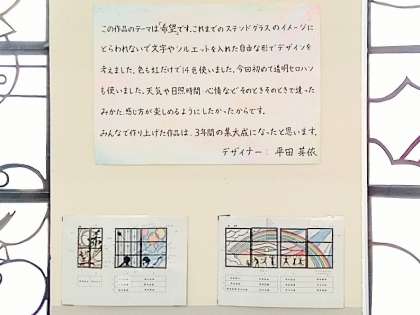 この作品のテーマは「希望」です。これまでのステンドグラスのイメージに
とらわれないで文字やシルエットを入れた自由な形でデザインを
考えました。色も虹だけで14色使いました。今回初めて透明セロハン
も使いました。天気や日照時間、心情などそのときそのときで違った
みかた、感じ方が楽しめるようにしたかったからです。
みんなで作り上げた作品は、3年間の集大成になったと思います。
デザイナー：平田 英依